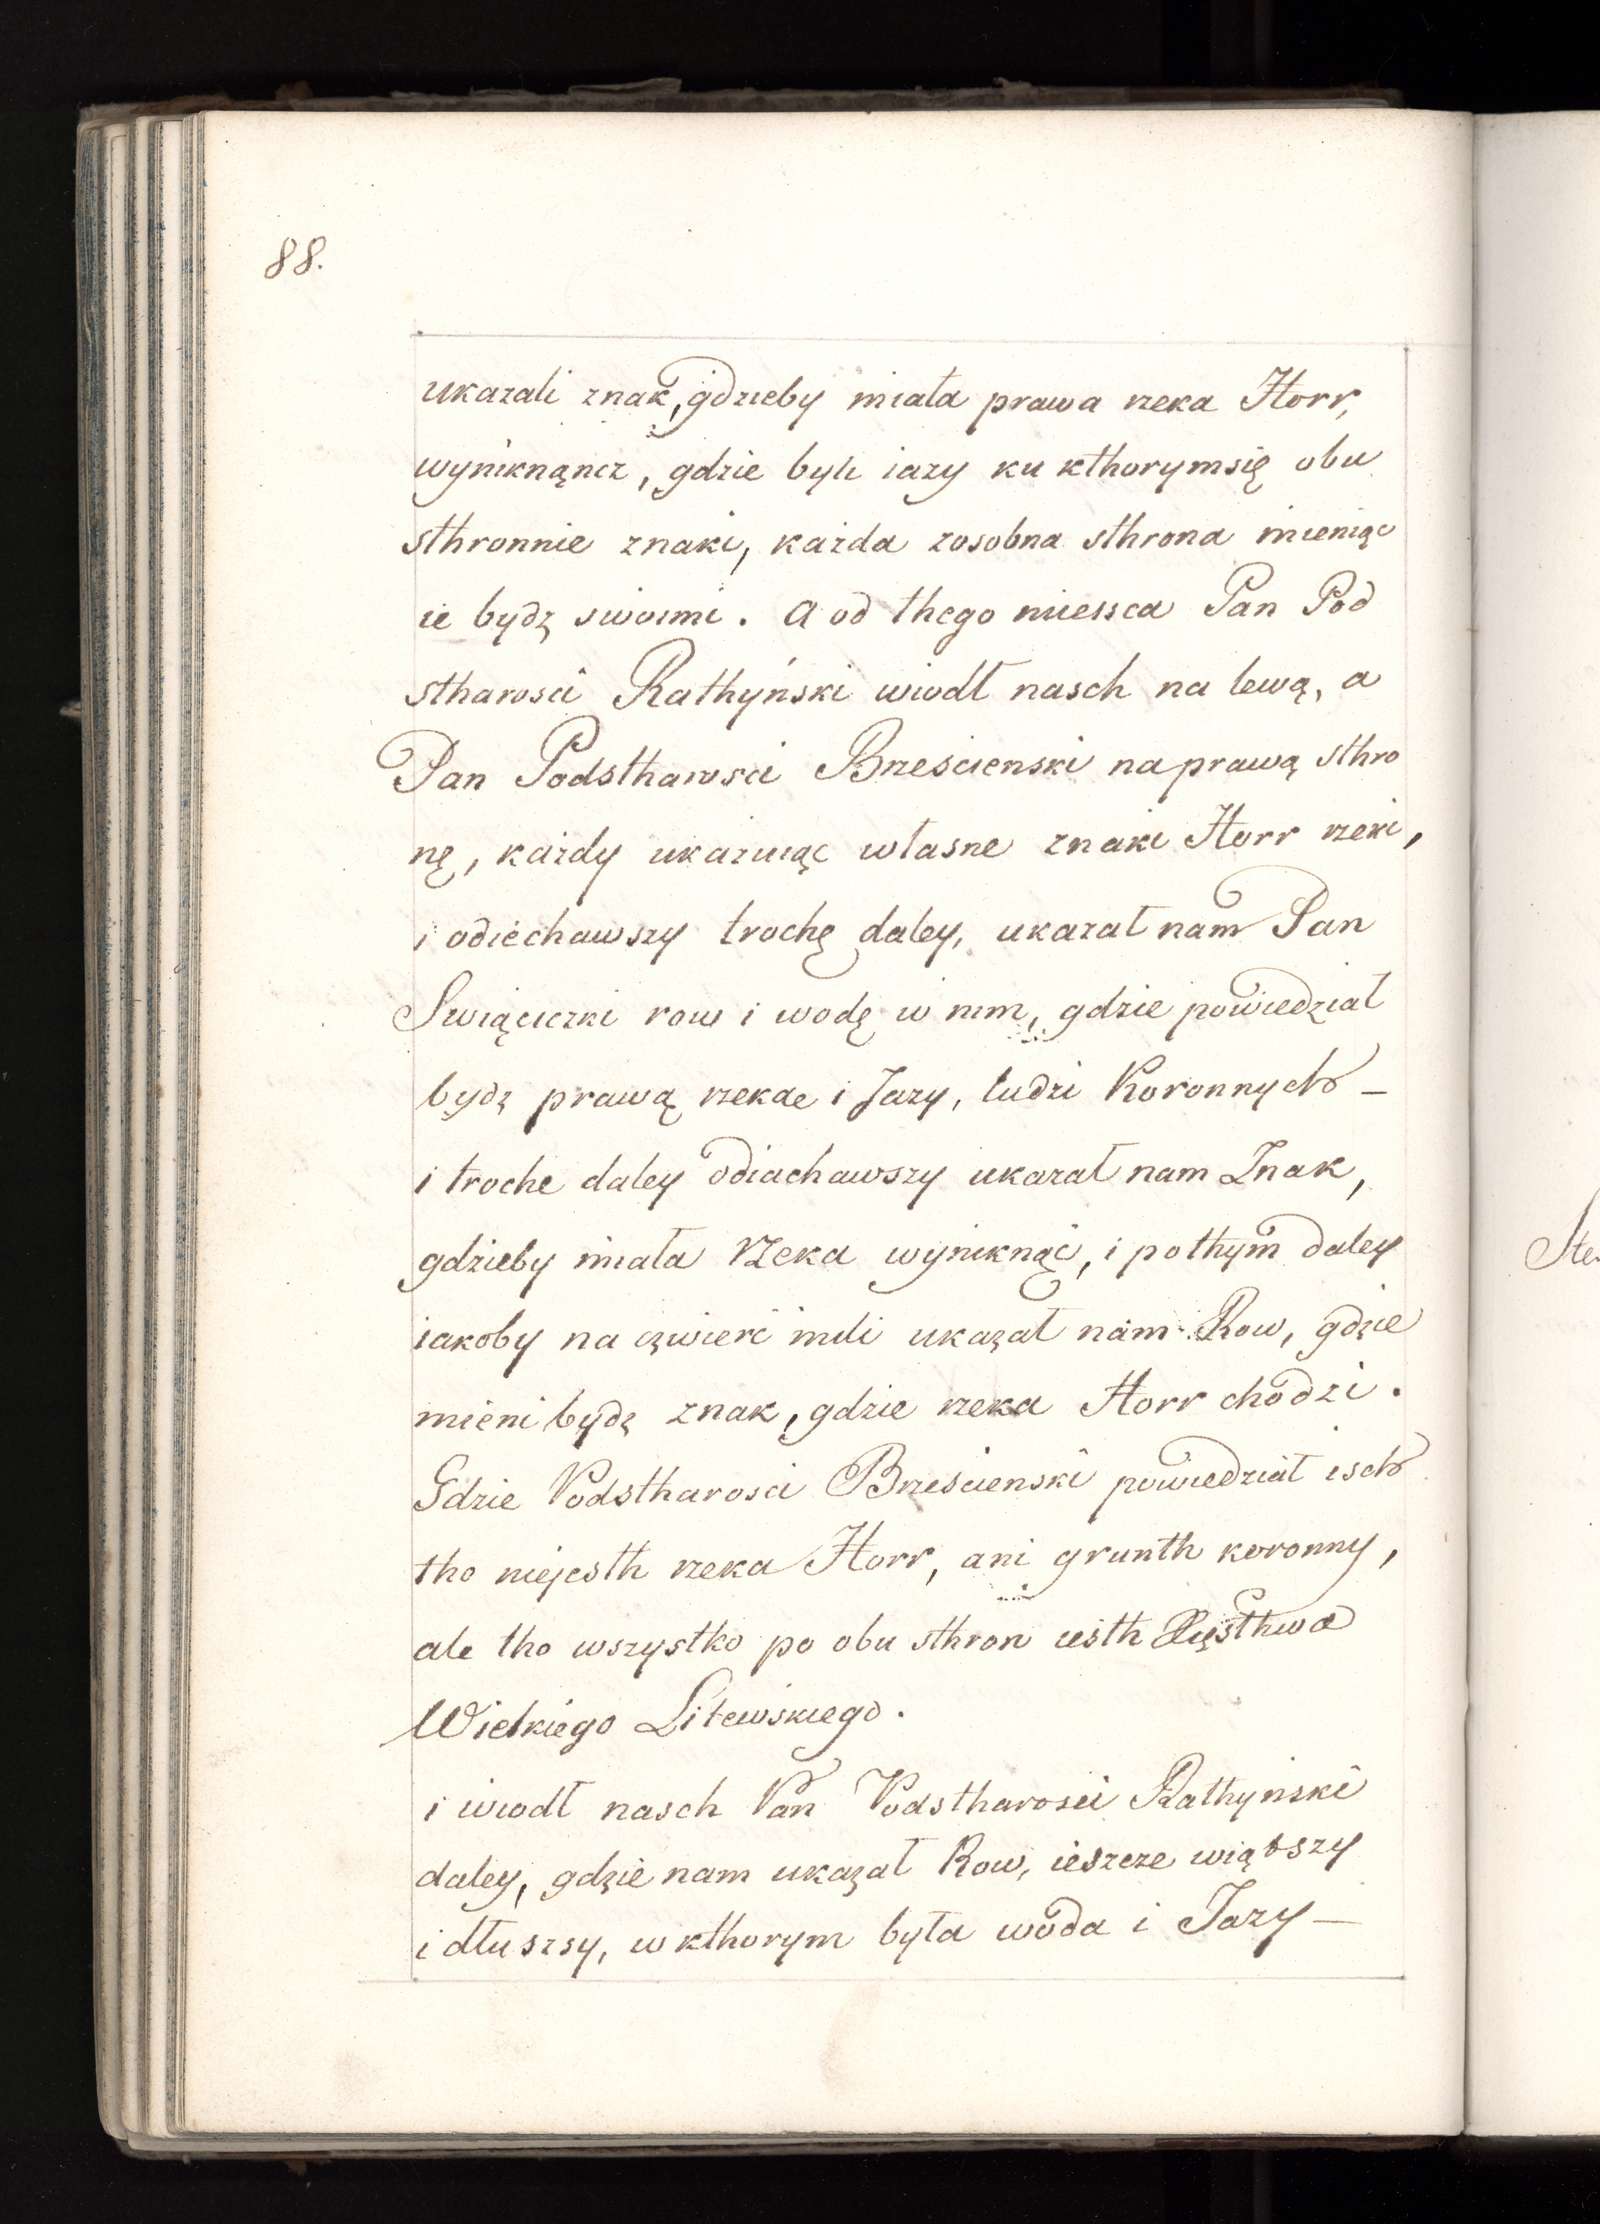 88.
ukazali znak, gdzieby miała prawa rzeka Horr,
wyniknąncz, gdzie byli iazy ku kthorymsię obu
sthronnie znaki, każda zosobna sthrona mieniąc
ie bydź swoimi. A od thego miessca Pan Pod
stharosci Rathyński wiodł nasch na lewą, a
Pan Podstharosci Brzescienski na prawą sthro
nę, każdy ukazuiąc własne znaki Horr rzeki,
i odiechawszy trochę daley, ukazał nam Pan
Swiąciczki row i wodę w nim, gdzie powiedział
bydź prawą rzekae i Jazy, ludzi Koronnych –
i troche daley odiachawszy ukazał nam Znak,
gdzieby miała rzeka wyniknąć, i pothym daley
iakoby na czwierć mili ukazał nam Row, gdzie
mieni bydź znak, gdzie rzeka Horr chodzi.
Gdzie Podstharosci Brzescienski powiedział isch
tho niejesth rzeka Horr, ani grunth koronny,
ale tho wszystko po obu sthron iesth Xięsthwa
Wielkiego Litewskiego.
i wiodł nasch Pan Podstharosci Rathyński
daley, gdzie nam ukazał Row, ieszcze wiątszy
i dłuszsy, w kthorym była woda i Jazy –